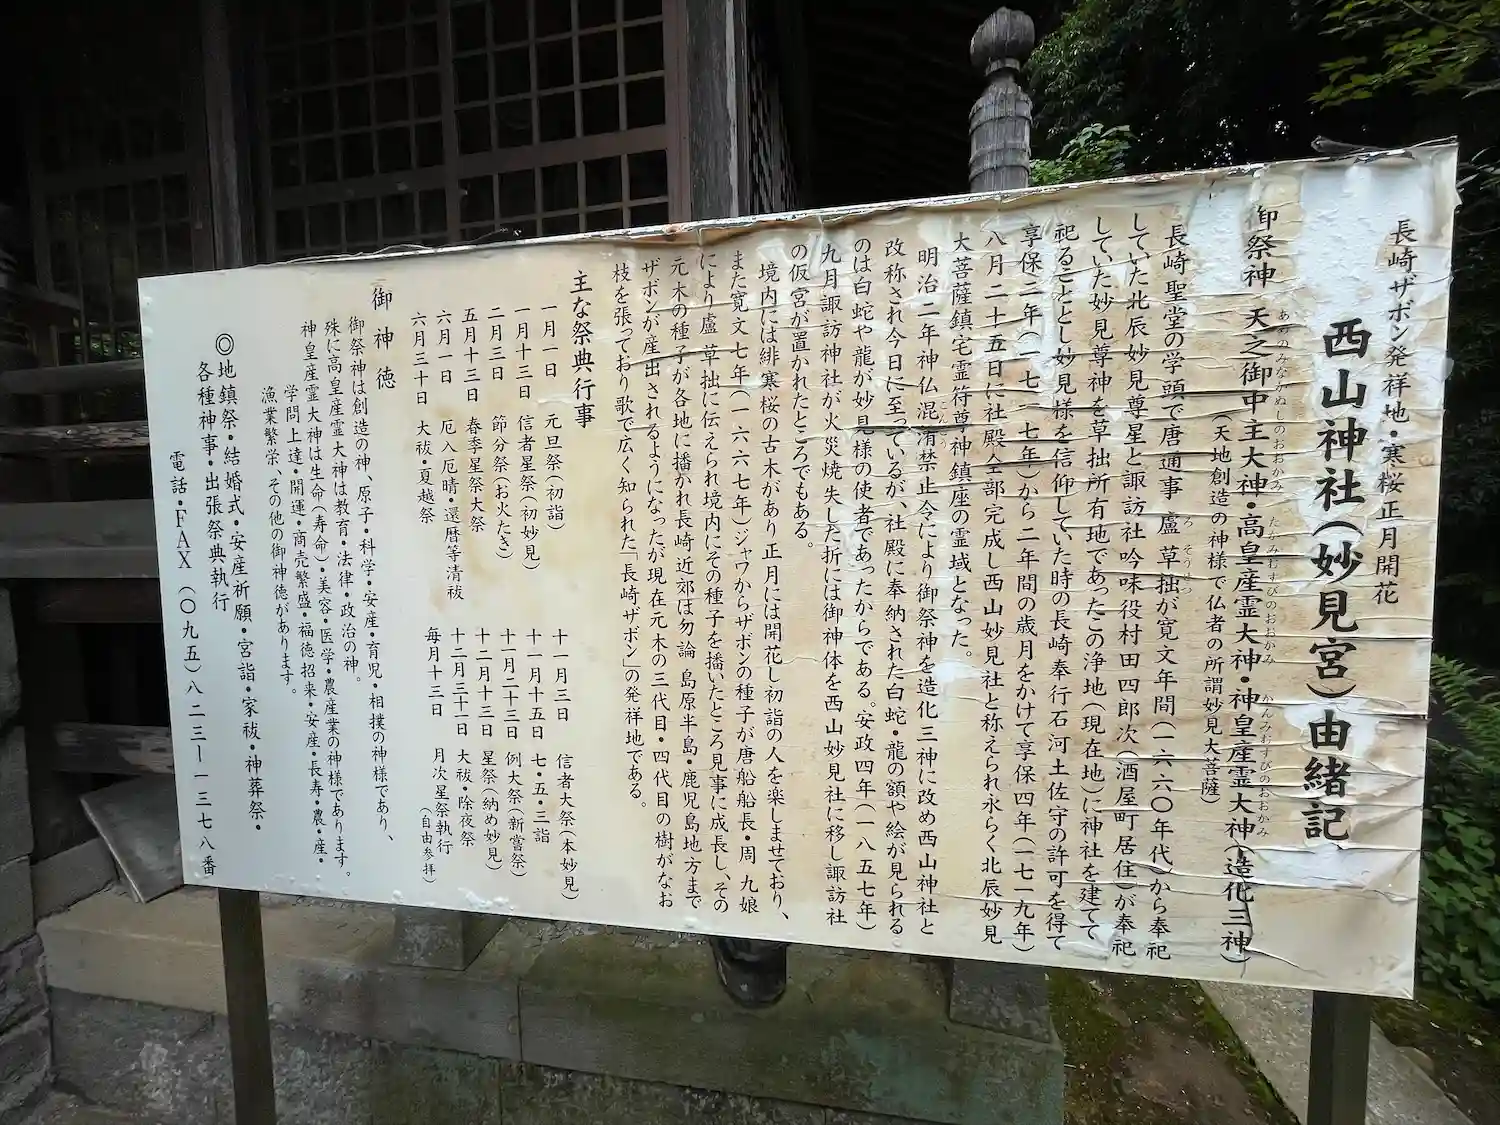 長崎ザボン発祥地・寒桜正月開花
西山神社(妙見宮)由緒記
御祭神 天之御中主大神・高皇産霊大神・神皇産霊大神(造化三神)
あめのみなかぬしのおおかみ たかみむすびのおおかみ かんみむすびのおおかみ
(天地創造の神様で仏者の所謂妙見大菩薩)
長崎聖堂の学頭で唐通事 盧 草拙が寛文年間(一六六〇年代)から奉祀
ろ そうせつ
していた北辰妙見尊星と諏訪社吟味役村田四郎次(酒屋町居住)が奉祀
していた妙見尊神を草拙所有地であったこの浄地(現在地)に神社を建てて
祀ることとし妙見様を信仰していた時の長崎奉行石河土佐守の許可を得て
享保二年(一七一七年)から二年間の歳月をかけて享保四年(一七一九年)
八月二十五日に社殿全部完成し西山妙見社と称えられ永らく北辰妙見
大菩薩鎮宅霊符尊神鎮座の霊域となった。
明治二年神仏混淆禁止令により御祭神を造化三神に改め西山神社と
こんこう
改称され今日に至っているが、社殿に奉納された白蛇・龍の額や絵が見られる
のは白蛇や龍が妙見様の使者であったからである。安政四年(一八五七年)
九月諏訪神社が火災焼失した折には御神体を西山妙見社に移し諏訪社
の仮宮が置かれたところでもある。
境内には緋寒桜の古木があり正月には開花し初詣の人を楽しませており、
また寛文七年(一六六七年)ジャワからザボンの種子が唐船船長・周 九娘
により盧 草拙に伝えられ境内にその種子を播いたところ見事に成長し、その
元木の種子が各地に播かれ長崎近郊は勿論 島原半島・鹿児島地方まで
ザボンが産出されるようになったが現在元木の三代目・四代目の樹がなお
枝を張っており歌で広く知られた「長崎ザボン」の発祥地である。
主な祭典行事
一月一日 元旦祭(初詣)
一月十三日 信者星祭(初妙見)
二月三日 節分祭(お火たき)
五月十三日 春季星祭大祭
六月一日 厄入厄晴・還暦等清祓
六月三十日 大祓・夏越祭
十一月三日 信者大祭(本妙見)
十一月十五日 七・五・三詣
十一月二十三日 例大祭(新嘗祭)
十二月十三日 星祭(納め妙見)
十二月三十一日 大祓・除夜祭
毎月十三日 月次星祭執行
(自由参拝)
御神徳
御祭神は創造の神、原子・科学・安産・育児・相撲の神様であり、
殊に高皇産霊大神は教育・法律・政治の神。
神皇産霊大神は生命(寿命)・美容・医学・農産業の神様であります。
学問上達・開運・商売繁盛・福徳招来・安産・長寿・農・産・
漁業繁栄、その他の御神徳があります。
◎地鎮祭・結婚式・安産祈願・宮詣・家祓・神葬祭・
各種神事・出張祭典執行
電話・FAX(〇九五)八二三ー一三七八番